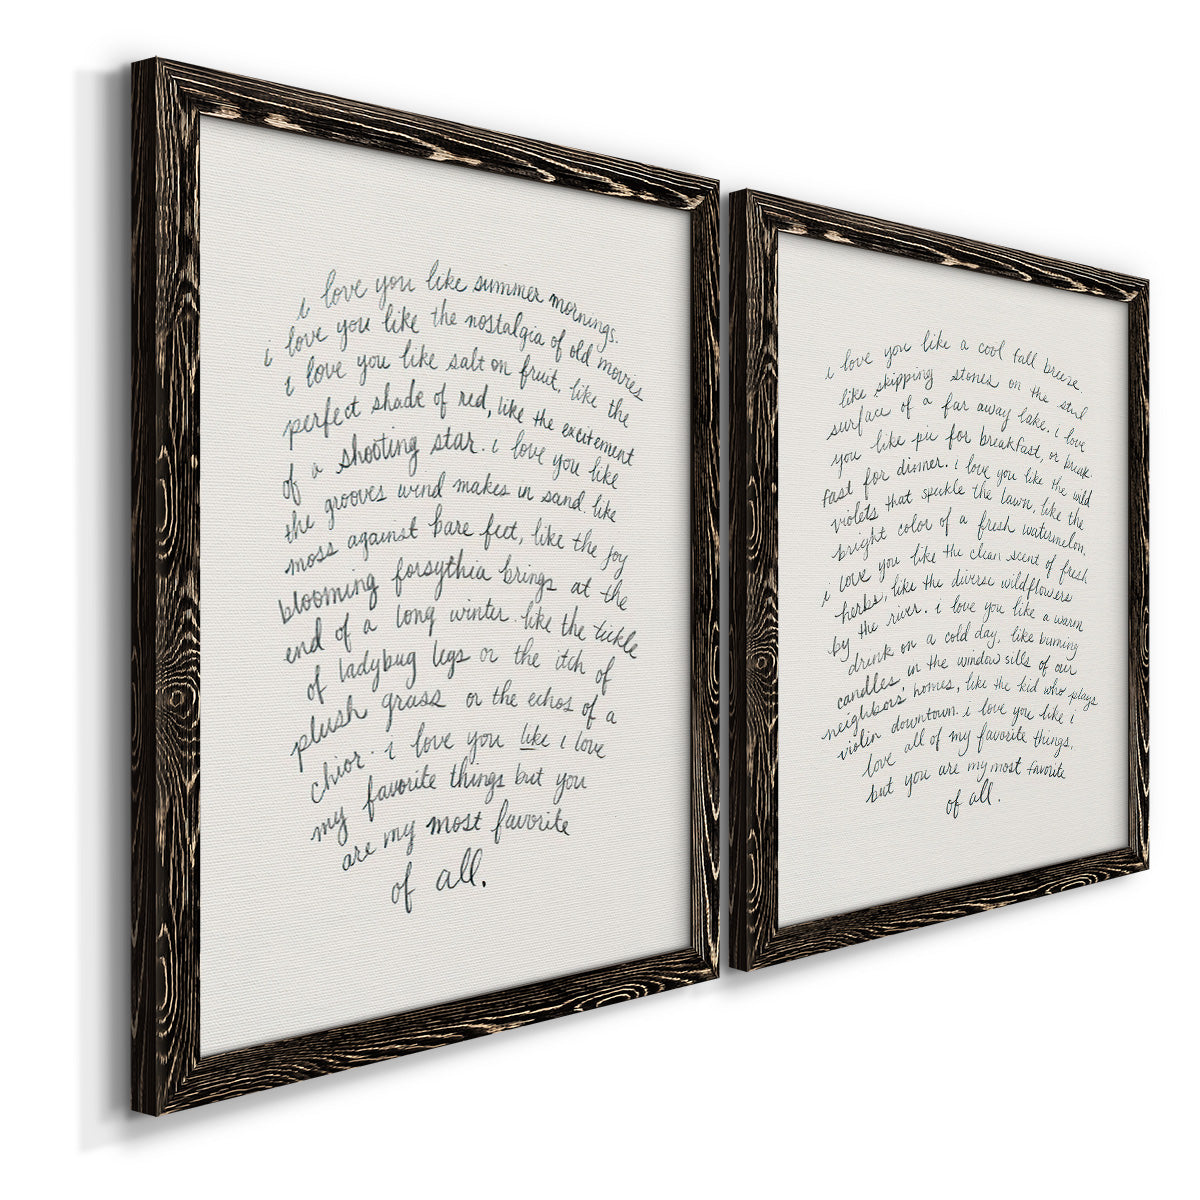 i love you like summer mornings.
i love you like the nostalgia of old movies
i love you like salt on fruit, like the
perfect shade of red, like the excitement
of a shooting star. i love you like
the grooves wind makes in sand. like
moss against bare feet, like the joy
blooming forsythia brings at the
end of a long winter. like the tickle
of ladybug legs or the itch of
plush grass or the echos of a
chior. i love you like i love
my favorite things but you
are my most favorite
of all.
i love you like a cool fall breeze.
like skipping stones on the still
surface of a far away lake. i love
you like pie for breakfast, or break
fast for dinner. i love you like the wild
violets that speckle the lawn, like the
bright color of a fresh watermelon.
i love you like the clean scent of fresh
herbs, like the diverse wildflowers
by the river. i love you like a warm
drink on a cold day, like burning
candles in the window sills of our
neighbors' homes, like the kid who plays
violin downtown. i love you like i
love all of my favorite things.
but you are my most favorite
of all.